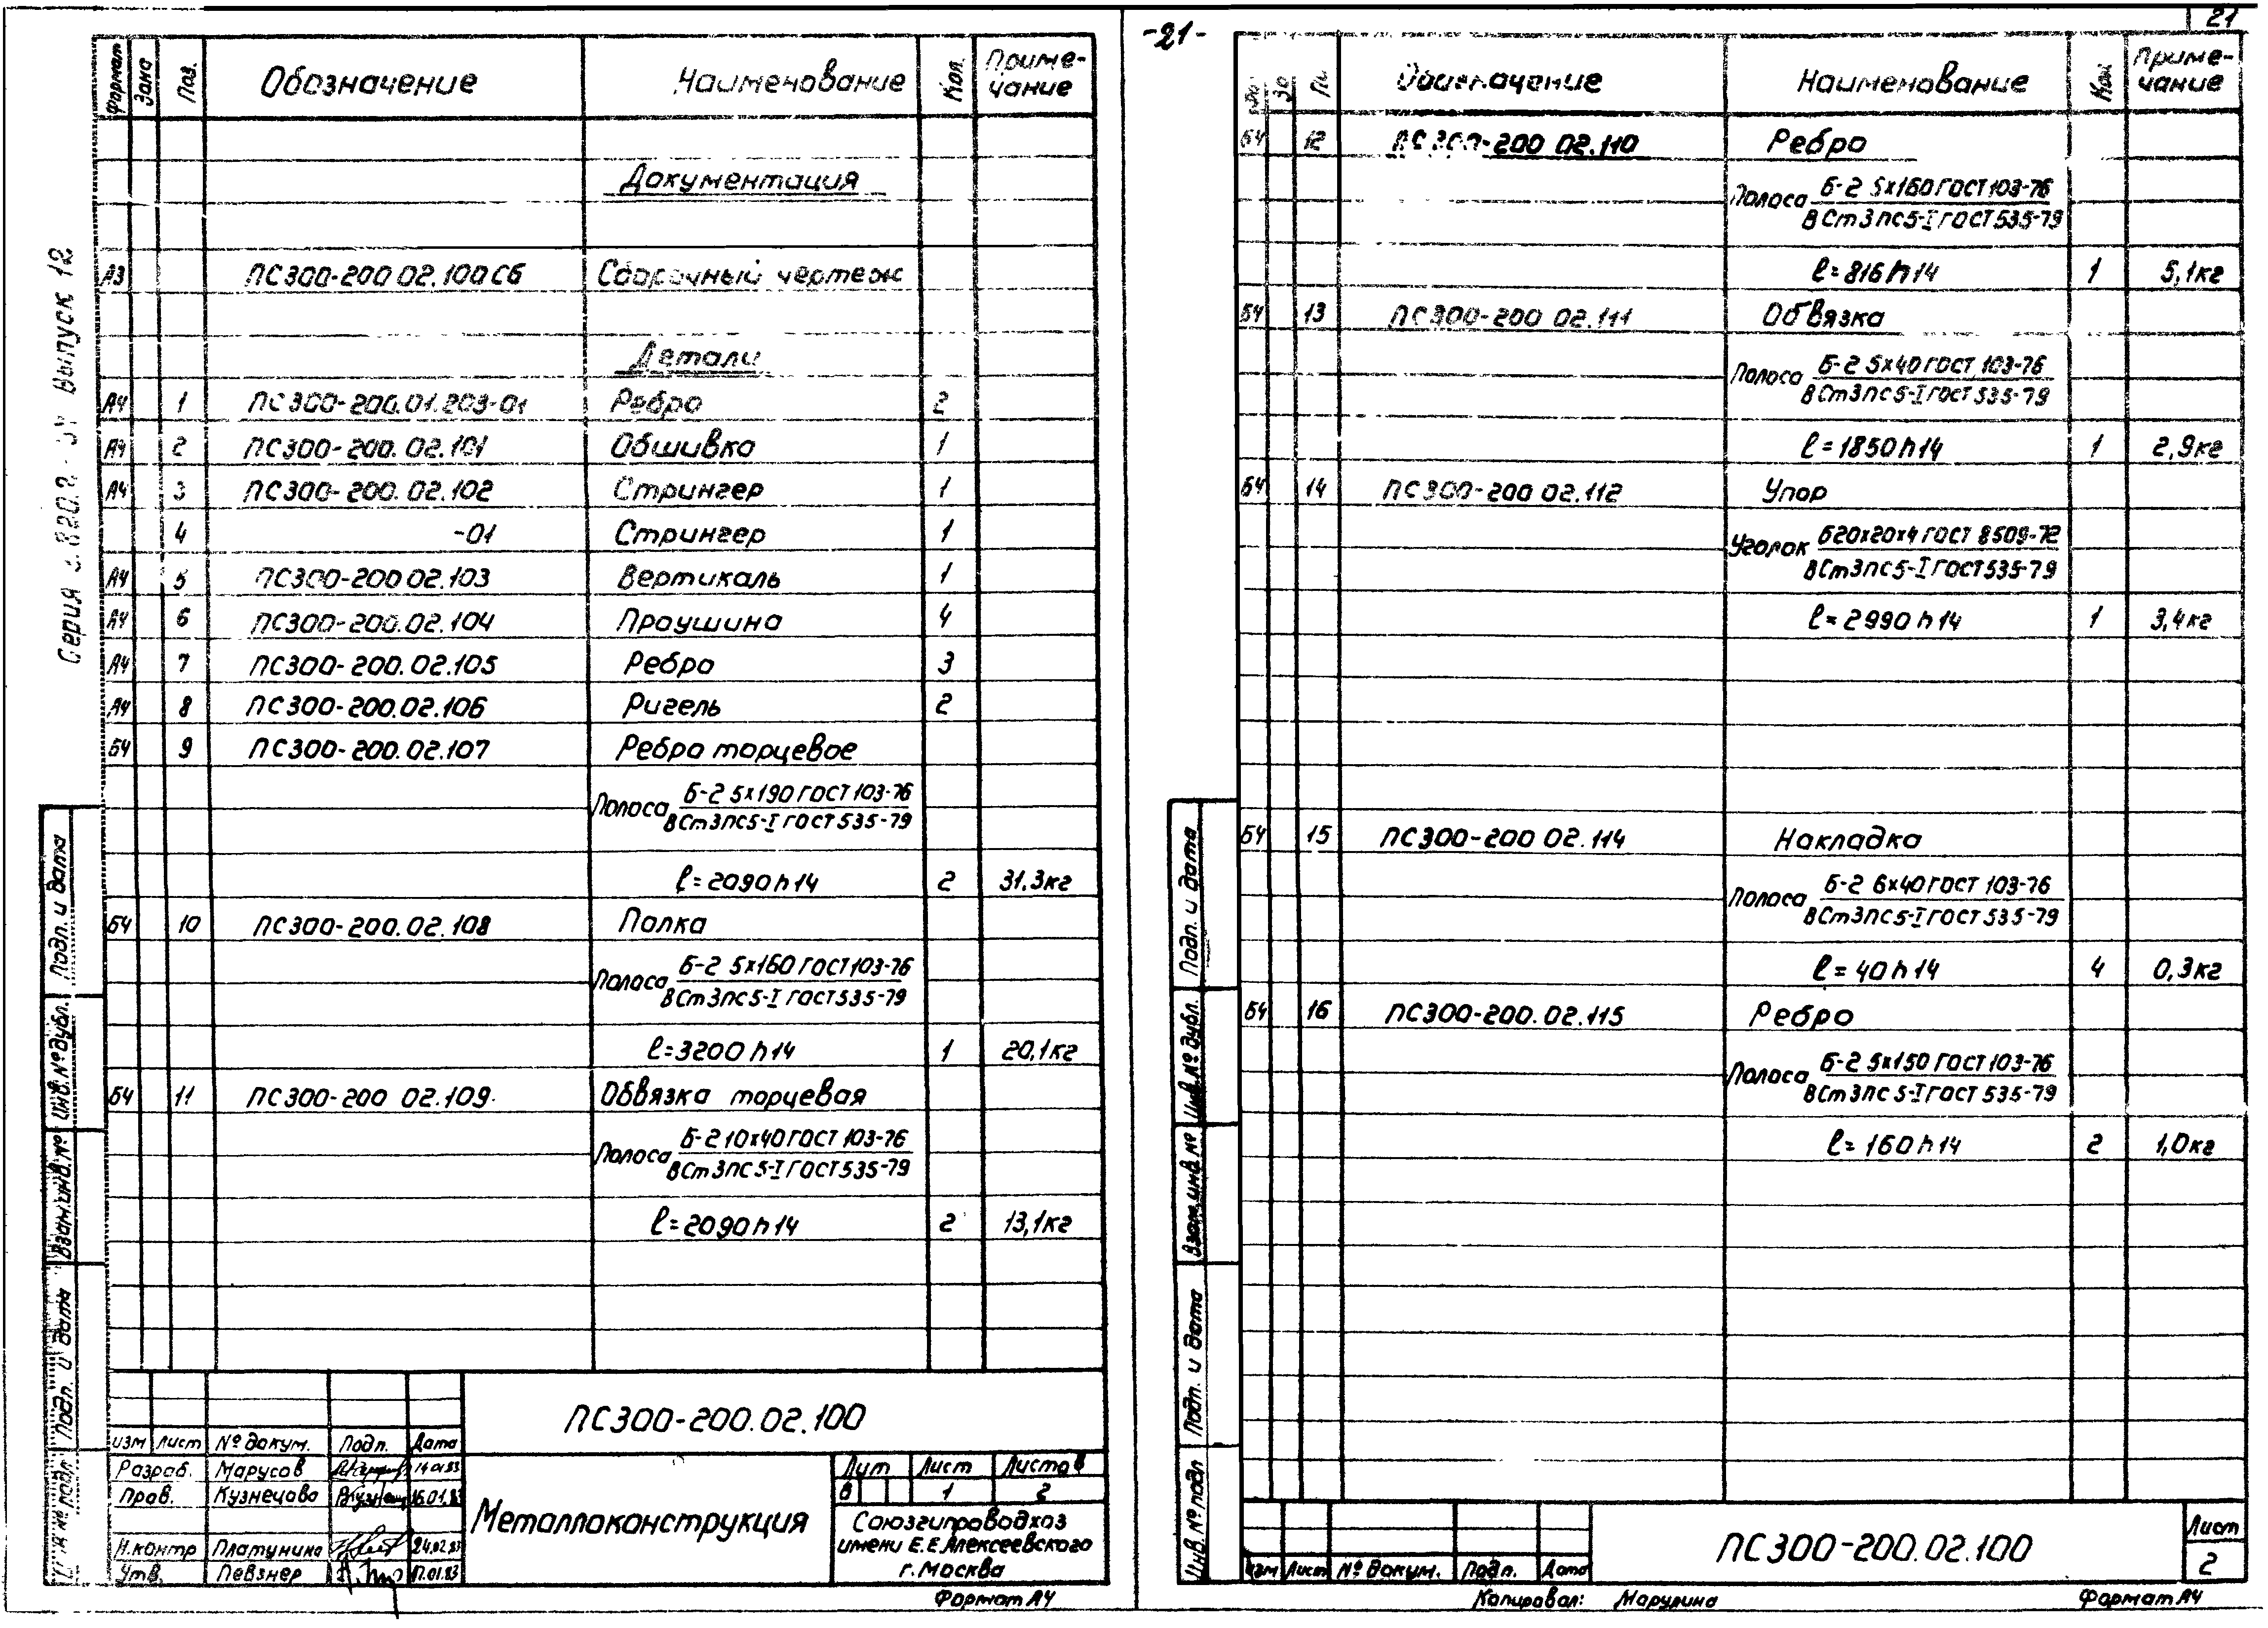 21
-21-
Серия 3.820.2- Выпуск 12
Формат Зона Поз. Обозначение Наименование Кол. Приме-
чание
Документация
А3 ПС300-200 02.100СБ Сборочный чертеж
Детали
А4 1 ПС300-200.01.203-01 Ребро 2
А4 2 ПС300-200.02.101 Обшивка 1
А4 3 ПС300-200.02.102 Стрингер 1
4 -01 Стрингер 1
А4 5 ПС300-200 02.103 Вертикаль 1
А4 6 ПС300-200.02.104 Проушина 4
А4 7 ПС300-200.02.105 Ребро 3
А4 8 ПС300-200.02.106 Ригель 2
БЧ 9 ПС300-200.02.107 Ребро торцевое
Б-2 5х190 ГОСТ 103-76
Полоса
ВСт3пс5-I ГОСТ 535-79
ℓ=2090h14 2 31.3кг
БЧ 10 ПС300-200.02.108 Полка
Б-2 5х160 ГОСТ 103-76
Полоса
ВСт3пс5-I ГОСТ 535-79
ℓ=3200h14 1 20,1кг
БЧ 11 ПС300-200 02.109 Обвязка торцевая
Б-2 10х40 ГОСТ 103-76
Полоса
ВСт3пс5-I ГОСТ 535-79
ℓ=2090h14 2 13,1кг
Подп. и дата
Инв.№ дубл.
Взам.инв.№
Подп. и дата
Инв № подл
ПС300-200.02.100
Изм Лист № докум. Подп. Дата
Разраб. Марусов 14.01.83
Пров. Кузнецова 16.01.83
Н.контр Платунина 24.02.83
Утв. Певзнер 17.01.83
Металлоконструкция
Лит Лист Листов
В 1 2
Союзгипроводхоз
имени Е.Е.Алексеевского
г.Москва
Формат А4
Обозначение Наименование Кол Приме-
чание
БЧ 12 ПС300-200 02.110 Ребро
Б-2 5х160 ГОСТ 103-76
Полоса
ВСт3пс5-I ГОСТ 535-79
ℓ=816h14 1 5,1кг
БЧ 13 ПС300-200 02.111 Обвязка
Б-2 5х40 ГОСТ 103-76
Полоса
ВСт3пс5-I ГОСТ 535-79
ℓ=1850h14 1 2,9кг
БЧ 14 ПС300-200 02.112 Упор
Б20х20х4 ГОСТ 8509-72
Уголок
ВСт3пс5-I ГОСТ 535-79
ℓ=2990h14 1 3,4кг
БЧ 15 ПС300-200 02.114 Накладка
Б-2 6х40 ГОСТ 103-76
Полоса
ВСт3пс5-I ГОСТ 535-79
ℓ=40h14 4 0,3кг
БЧ 16 ПС300-200.02.115 Ребро
Б-2 5х150 ГОСТ 103-76
Полоса
ВСт3пс5-I ГОСТ 535-79
ℓ=160h14 2 1,0кг
Подп. и дата
Инв.№ дубл.
Взам.инв №
Подп. и дата
Инв.№ подл
Изм Лист № докум. Подп. Дата
ПС300-200.02.100
Лист
2
Копировал: Марулина
Формат А4